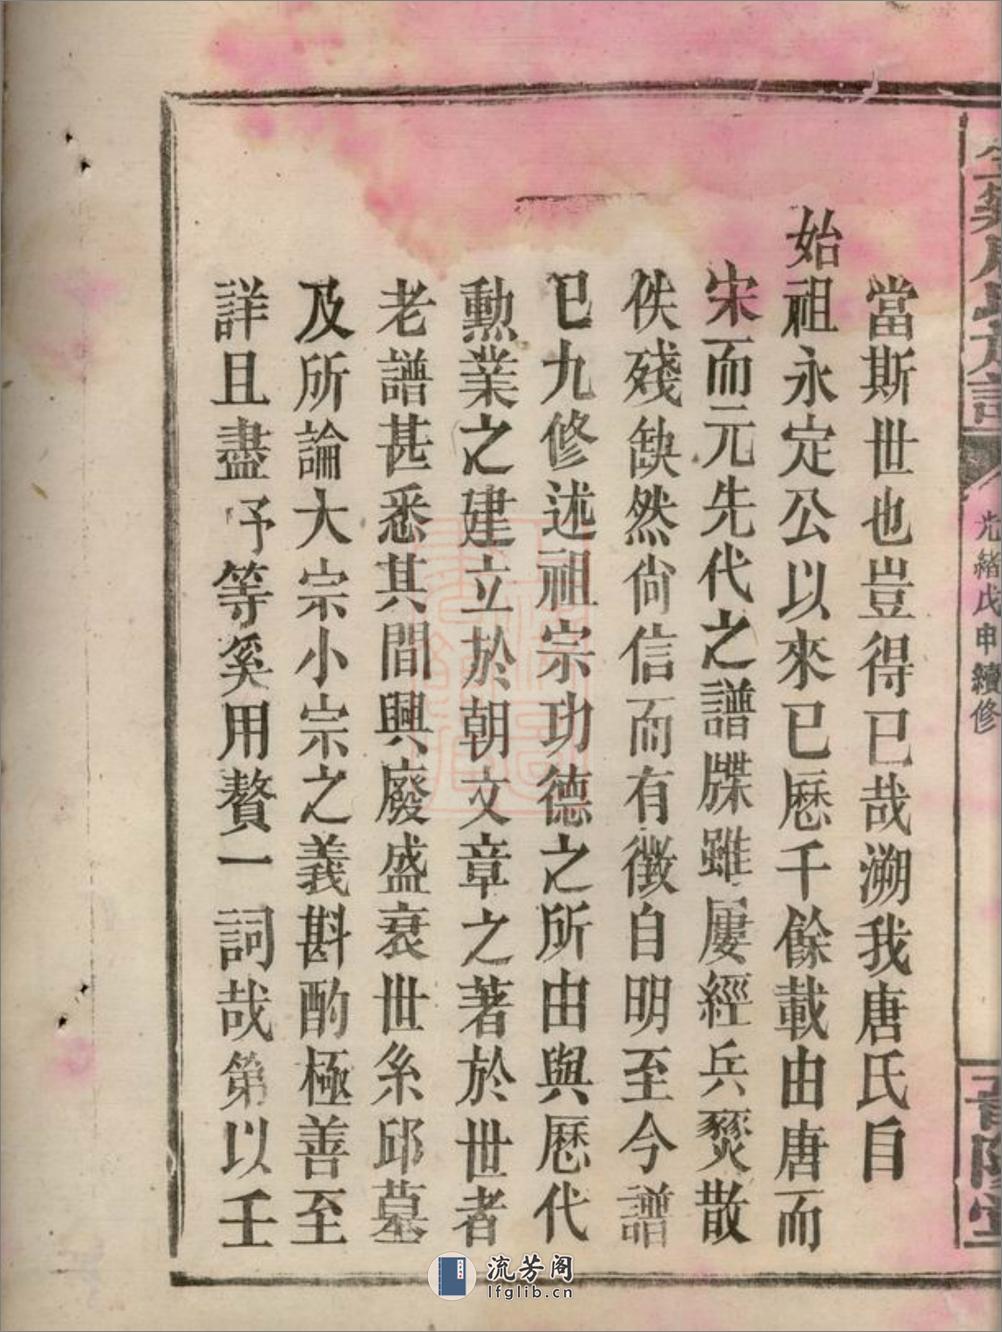 當斯世也豈得已哉溯我唐氏自
始祖永定公以來已歷千餘載由唐而
宋而元先代之譜牒雖屢經兵燹散
佚殘缺然尙信而有徵自明至今譜
已九修述祖宗功德之所由與歷代
勲業之建立於朝文章之著於世者
老譜甚悉其間興廢盛衰世系邱墓
及所論大宗小宗之義斟酌極善至
詳且盡予等奚用贅一詞哉第以壬
光緒戊申續修
晉陽堂
流芳阁
lfglib.cn